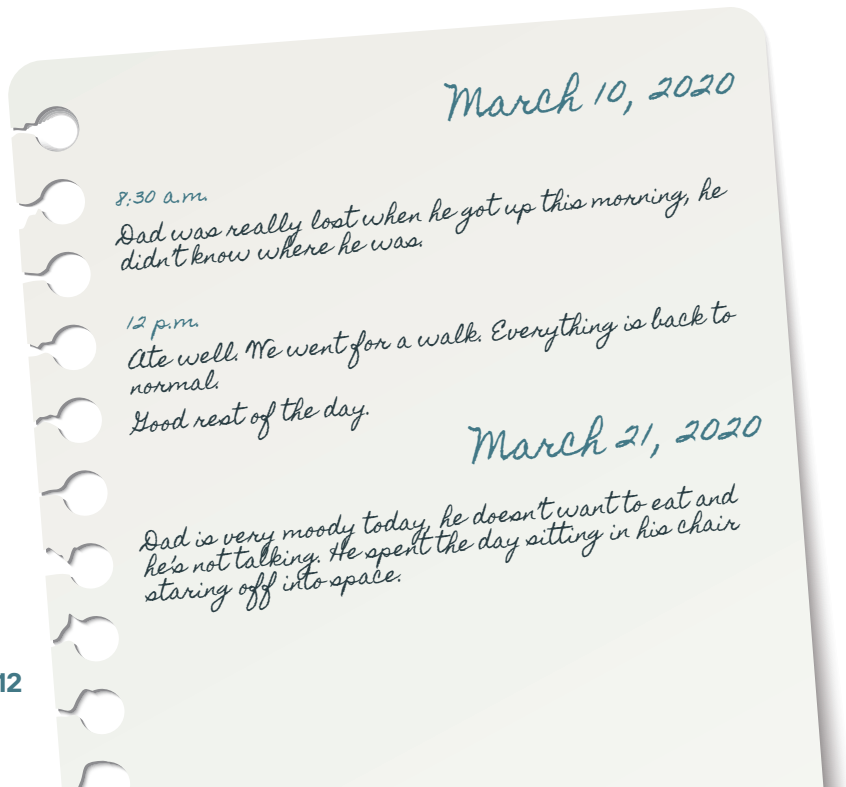 March 10, 2020
8:30 a.m.
Dad was really lost when he got up this morning, he
didn't know where he was.
12 p.m.
Ate well. We went for a walk. Everything is back to
normal.
Good rest of the day.
March 21, 2020
Dad is very moody today, he doesn't want to eat and
he's not talking. He spent the day sitting in his chair
staring off into space.
12